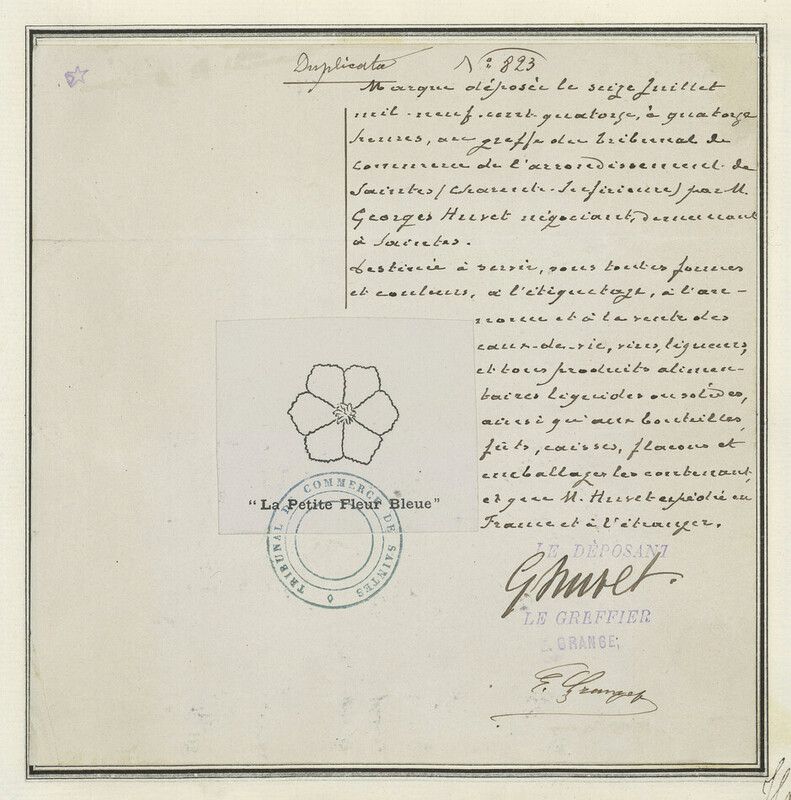 Duplicata N° 823
Marque déposée le seize Juillet
mil-neuf-cent-quatorze, à quatorze
heures, au greffe du Tribunal de
Commerce de l'arrondissement de
Saintes (Charente-Inférieure) par M.
Georges Huvet négociant, demeurant
à Saintes.
Destinée à servir, sous toutes formes
et couleurs, à l'étiquetage, à l'an-
nonce et à la vente des
eaux-de-vie, vins, liqueurs,
et tous produits alimen-
taires liquides ou solides,
ainsi qu'aux bouteilles,
fûts, caisses, flacons et
emballages les contenant,
et que M. Huvet expédie en
France et à l'étranger.
"La Petite Fleur Bleue"
TRIBUNAL DE COMMERCE DE SAINTES
LE DÉPOSANT
G. Huvet.
LE GREFFIER
E. GRANGE;
E. Granger